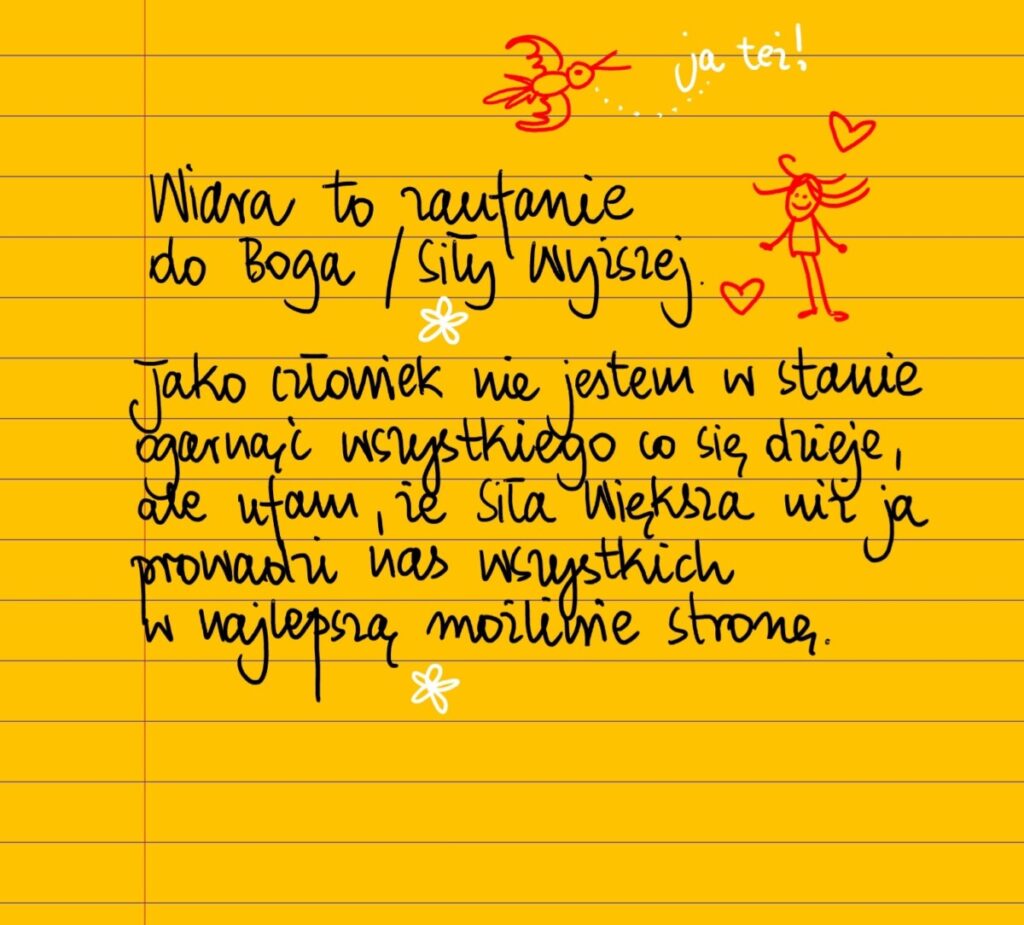 ja też!
Wiara to zaufanie
do Boga / Siły Wyższej.
Jako człowiek nie jestem w stanie
ogarnąć wszystkiego co się dzieje,
ale ufam, że Siła Większa niż ja
prowadzi nas wszystkich
w najlepszą możliwie stronę.